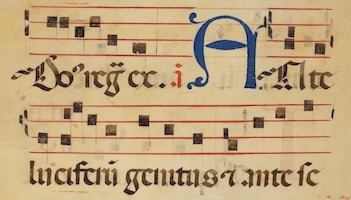 Do⁹ reg̃ ex. i ANte
luciferū genitus ⁊ ante se